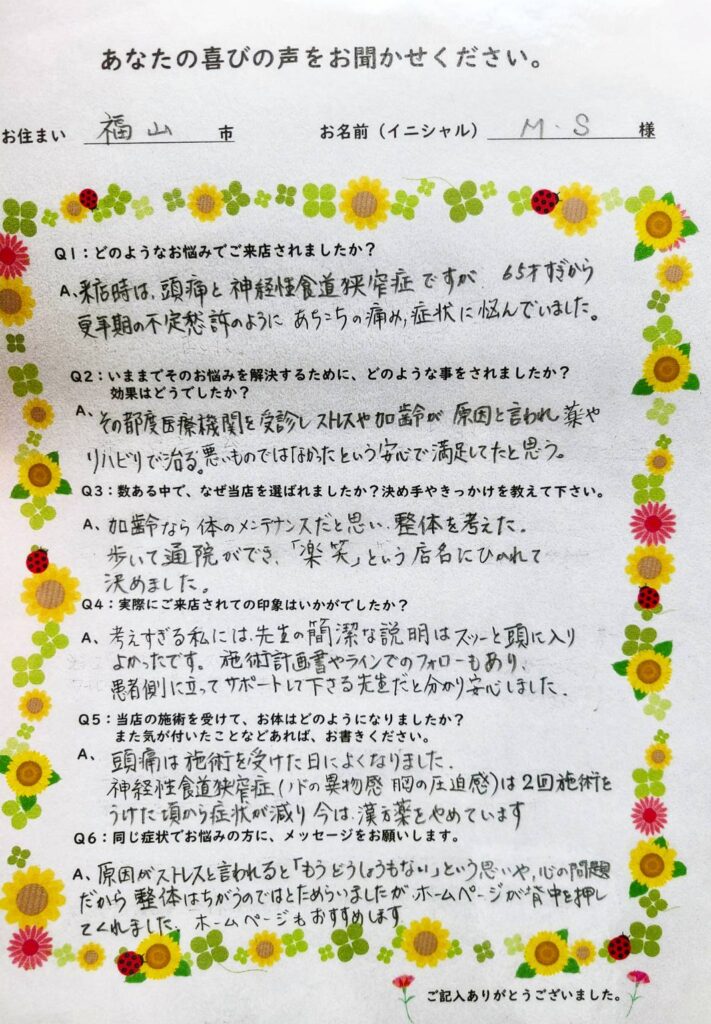 あなたの喜びの声をお聞かせください。
お住まい 福山 市 お名前（イニシャル） M・S 様
Q1：どのようなお悩みでご来店されましたか？
A、来店時は、頭痛と神経性食道狭窄症ですが 65才すぎから
更年期の不定愁訴のように あちこちの痛み，症状に悩んでいました。
Q2：いままでそのお悩みを解決するために、どのような事をされましたか？
効果はどうでしたか？
A、その都度医療機関を受診しストレスや加齢が原因と言われ薬や
リハビリで治る。悪いものではなかったという安心で満足してたと思う。
Q3：数ある中で、なぜ当店を選ばれましたか？決め手やきっかけを教えて下さい。
A、加齢なら体のメンテナンスだと思い、整体を考えた。
歩いて通院ができ、「楽笑」という店名にひかれて
決めました。
Q4：実際にご来店されての印象はいかがでしたか？
A、考えすぎる私には、先生の簡潔な説明はスッーと頭に入り
よかったです。施術計画書やラインでのフォローもあり、
患者側に立ってサポートして下さる先生だと分かり安心しました。
Q5：当店の施術を受けて、お体はどのようになりましたか？
また気が付いたことなどあれば、お書きください。
A、頭痛は施術を受けた日によくなりました。
神経性食道狭窄症（ノドの異物感 胸の圧迫感）は2回施術を
うけた頃から症状が減り 今は、漢方薬をやめています
Q6：同じ症状でお悩みの方に、メッセージをお願いします。
A、原因がストレスと言われると「もうどうしようもない」という思いや，心の問題
だから整体はちがうのではとためらいましたが、ホームページが背中を押し
てくれました。ホームページもおすすめします
ご記入ありがとうございました。